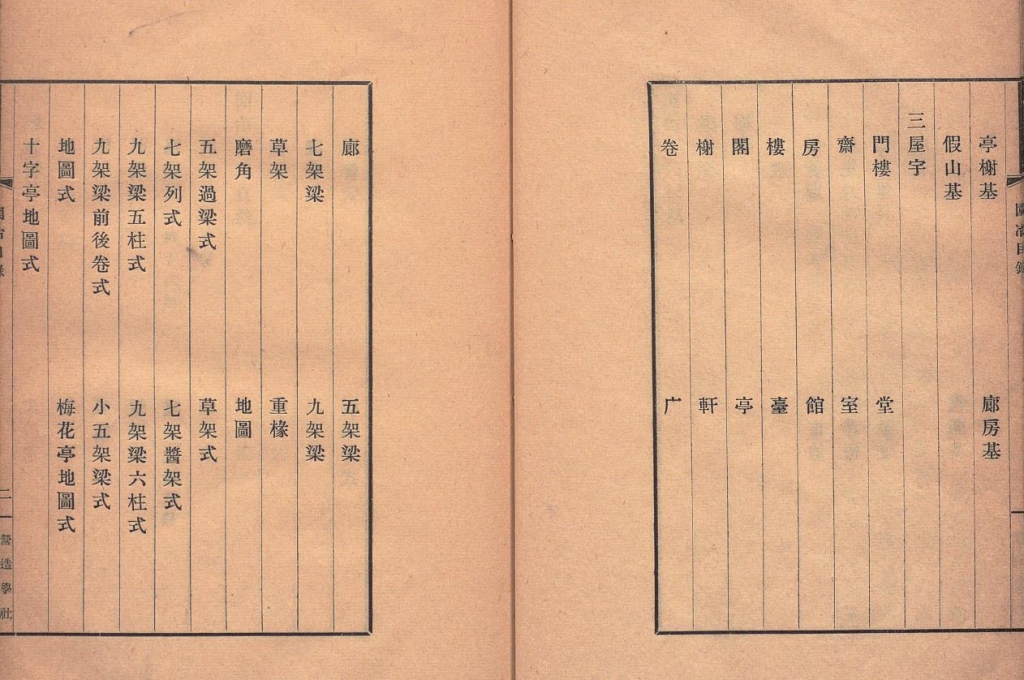 園冶目錄
亭榭基　廊房基
假山基
三屋宇
門樓　堂
齋　室
房　館
樓　臺
閣　亭
榭　軒
卷　广
廊　五架梁
七架梁　九架梁
草架　重椽
磨角　地圖
五架過梁式　草架式
七架列式　七架醬架式
九架梁五柱式　九架梁六柱式
九架梁前後卷式　小五架梁式
地圖式　梅花亭地圖式
十字亭地圖式
園冶目錄　二　營造學社